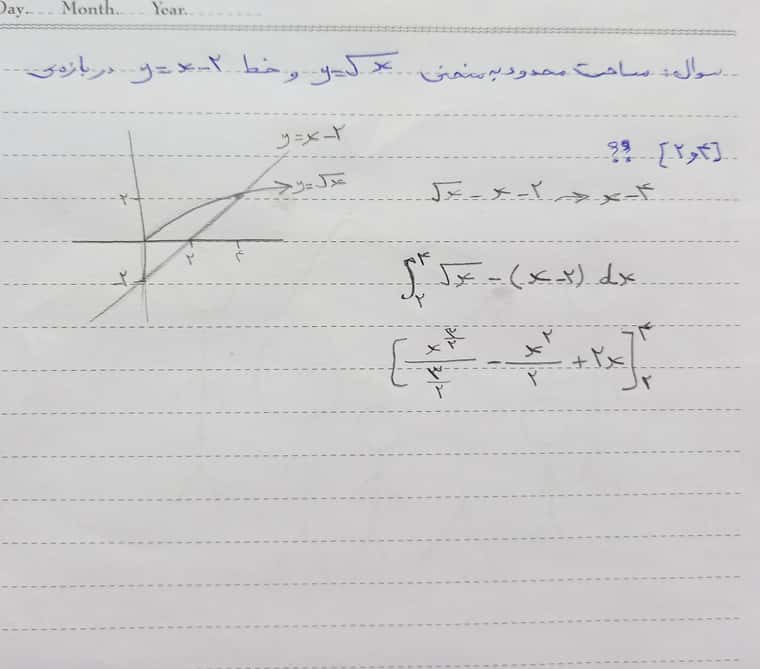 Day.... Month.... Year...........
سوال: مساحت محدود به منحنی y=√x و خط y=x-۲ در بازه‌ی
[۲و۴] ؟؟
y=x-۲
y=√x
۲
۲
۴
-۲
√x = x-۲ → x=۴
∫₂⁴ √x - (x-۲) dx
[x^(۳/۲)/(۳/۲) - x^۲/۲ + ۲x]₂⁴